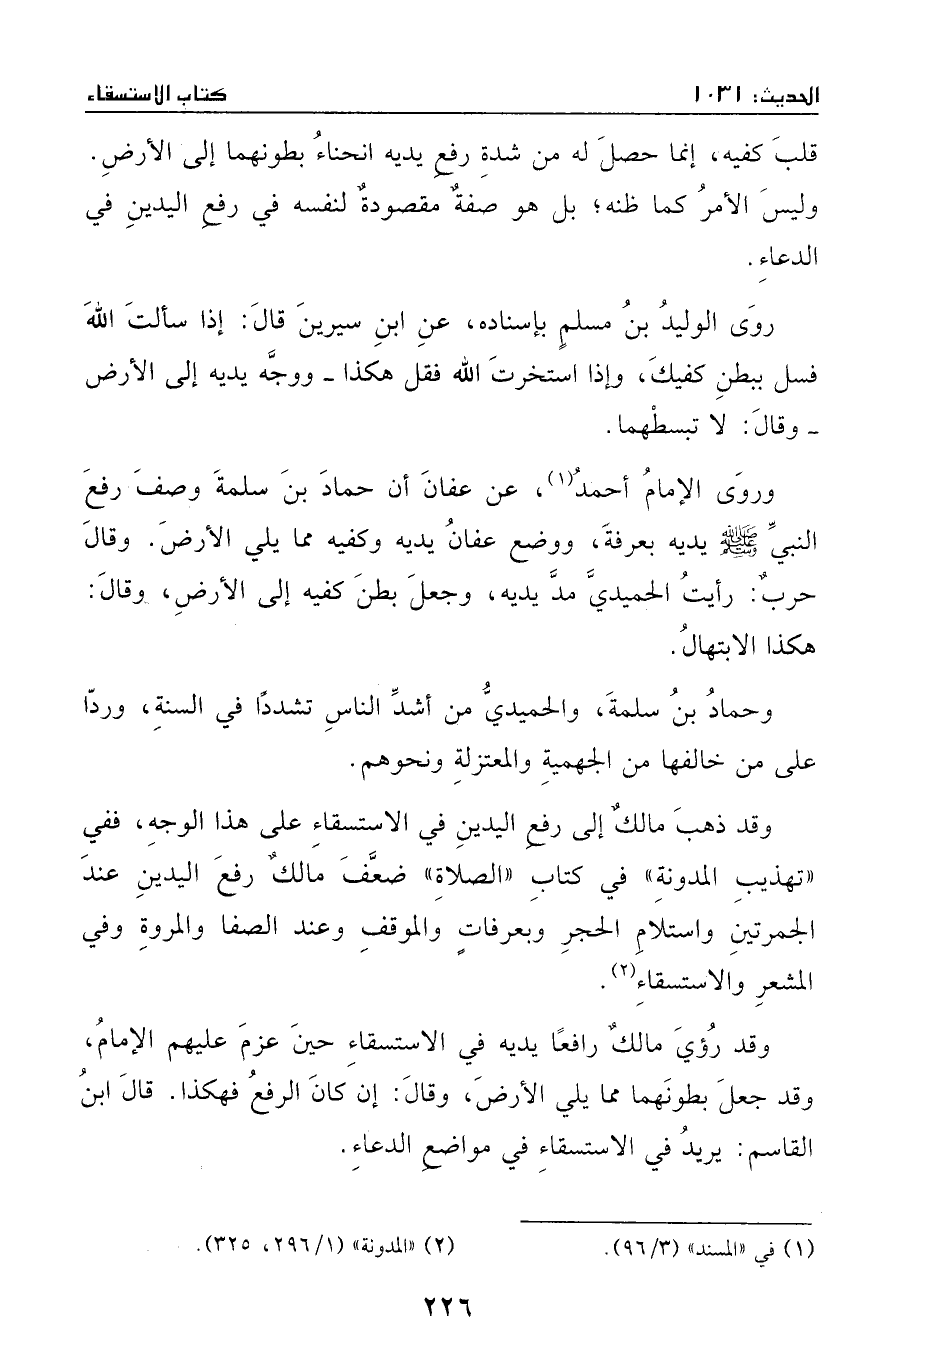 الحديث: ١٠٣١
كتاب الاستسقاء
قلبَ كفيه، إنما حصلَ له من شدةِ رفعِ يديه انحناءُ بطونهما إلى الأرضِ.
وليسَ الأمرُ كما ظنه؛ بل هو صفةٌ مقصودةٌ لنفسه في رفعِ اليدينِ في
الدعاءِ.
روَى الوليدُ بنُ مسلمٍ بإسناده، عنِ ابنِ سيرينَ قالَ: إذا سألتَ اللهَ
فسل ببطنِ كفيكَ، وإذا استخرتَ الله فقل هكذا ـ ووجَّه يديه إلى الأرض
ـ وقالَ: لا تبسطْهما.
وروَى الإمامُ أحمدُ(١)، عن عفانَ أن حمادَ بنَ سلمةَ وصفَ رفعَ
النبيِّ ﷺ يديه بعرفةَ، ووضع عفانُ يديه وكفيه مما يلي الأرضَ. وقالَ
حربٌ: رأيتُ الحميديَّ مدَّ يديه، وجعلَ بطنَ كفيه إلى الأرضِ، وقالَ:
هكذا الابتهالُ.
وحمادُ بنُ سلمةَ، والحميديُّ من أشدِّ الناسِ تشددًا في السنةِ، وردّا
على من خالفها من الجهميةِ والمعتزلةِ ونحوهم.
وقد ذهبَ مالكٌ إلى رفعِ اليدينِ في الاستسقاءِ على هذا الوجهِ، ففي
«تهذيبِ المدونةِ» في كتابِ «الصلاةِ» ضعَّفَ مالكٌ رفعَ اليدينِ عندَ
الجمرتينِ واستلامِ الحجرِ وبعرفاتٍ والموقفِ وعند الصفا والمروةِ وفي
المشعرِ والاستسقاءِ(٢).
وقد رُؤيَ مالكٌ رافعًا يديه في الاستسقاءِ حينَ عزمَ عليهم الإمامُ،
وقد جعلَ بطونَهما مما يلي الأرضَ، وقالَ: إن كانَ الرفعُ فهكذا. قالَ ابنُ
القاسم: يريدُ في الاستسقاءِ في مواضعِ الدعاءِ.
(١) في «المسند» (٣/ ٩٦).
(٢) «المدونة» (١/ ٢٩٦، ٣٢٥).
٢٢٦